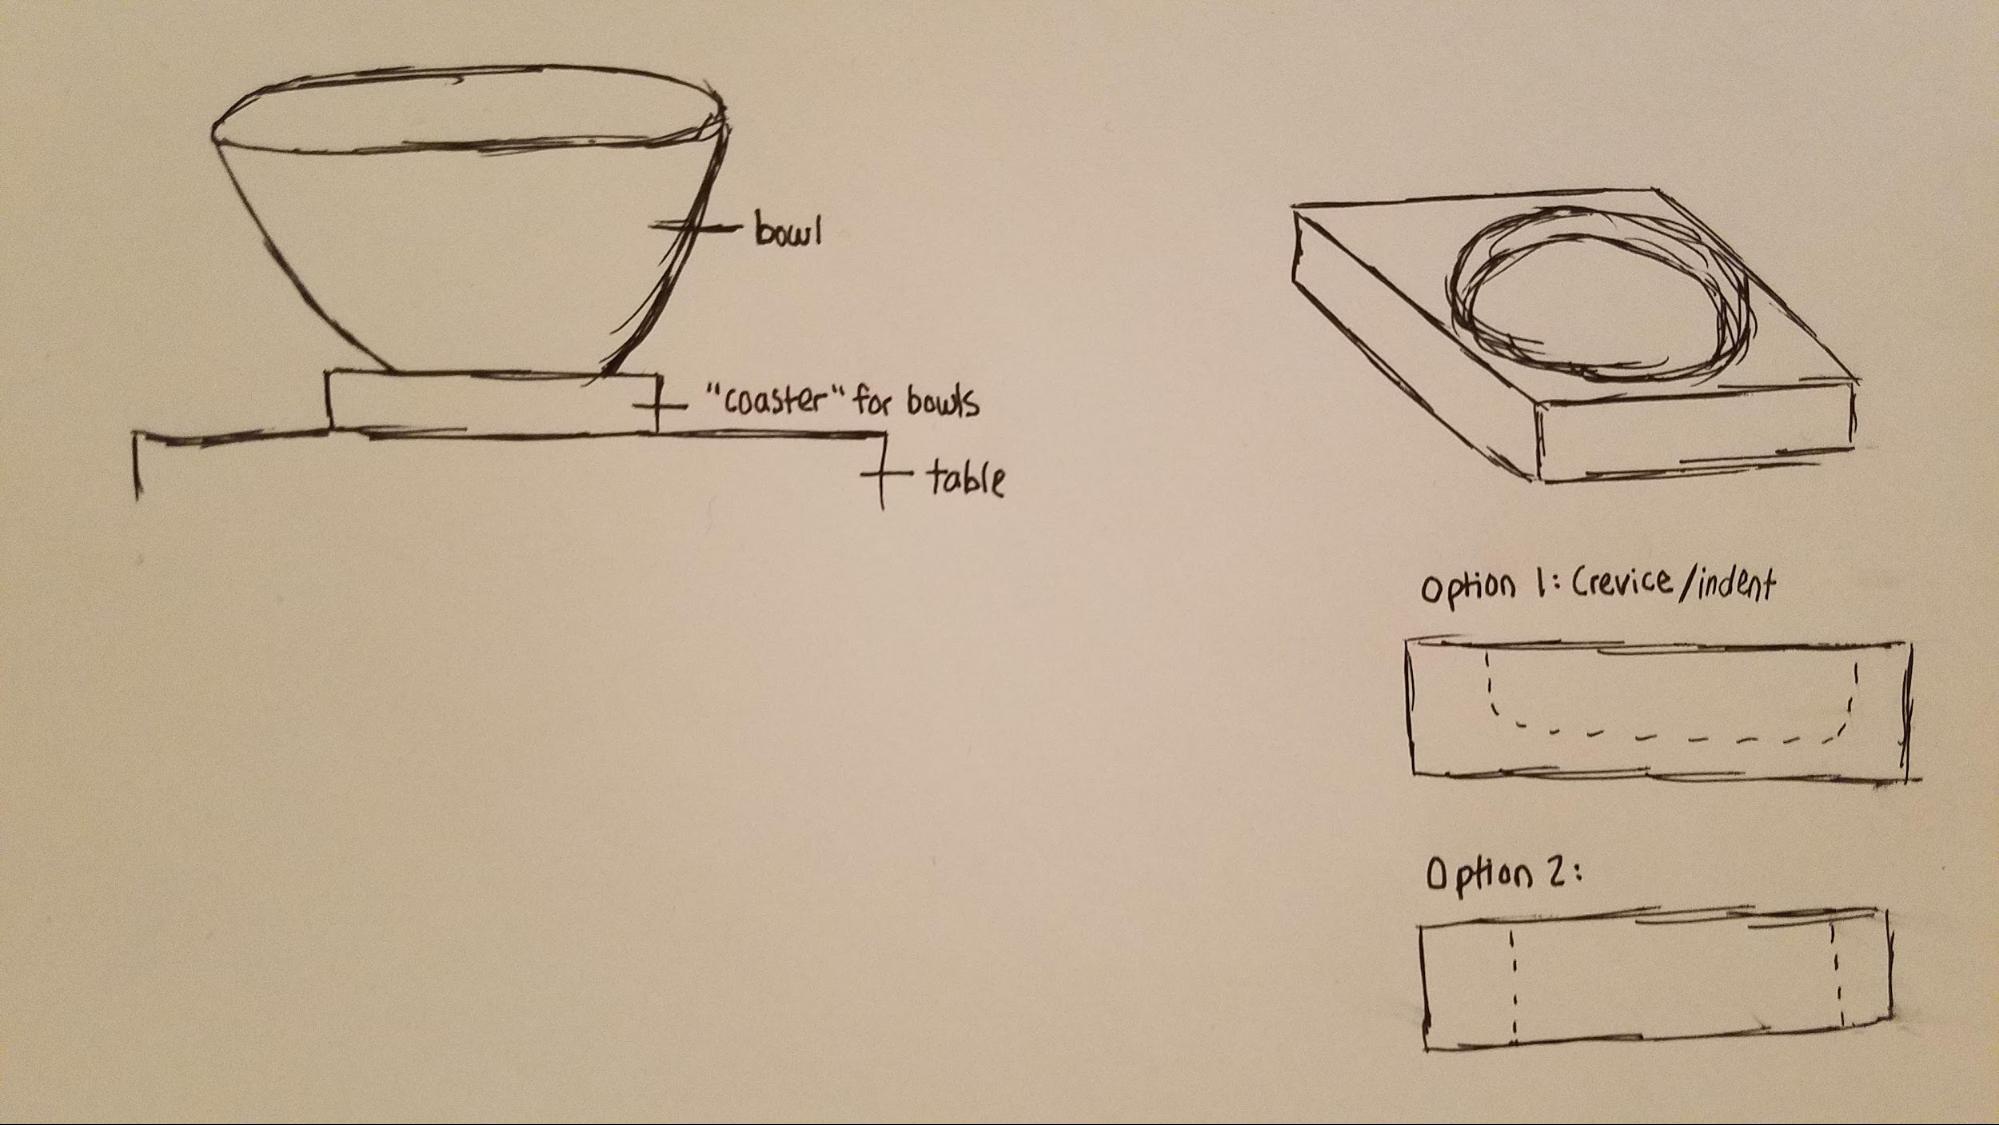 bowl
"coaster" for bowls
table
Option 1: Crevice/indent
Option 2: